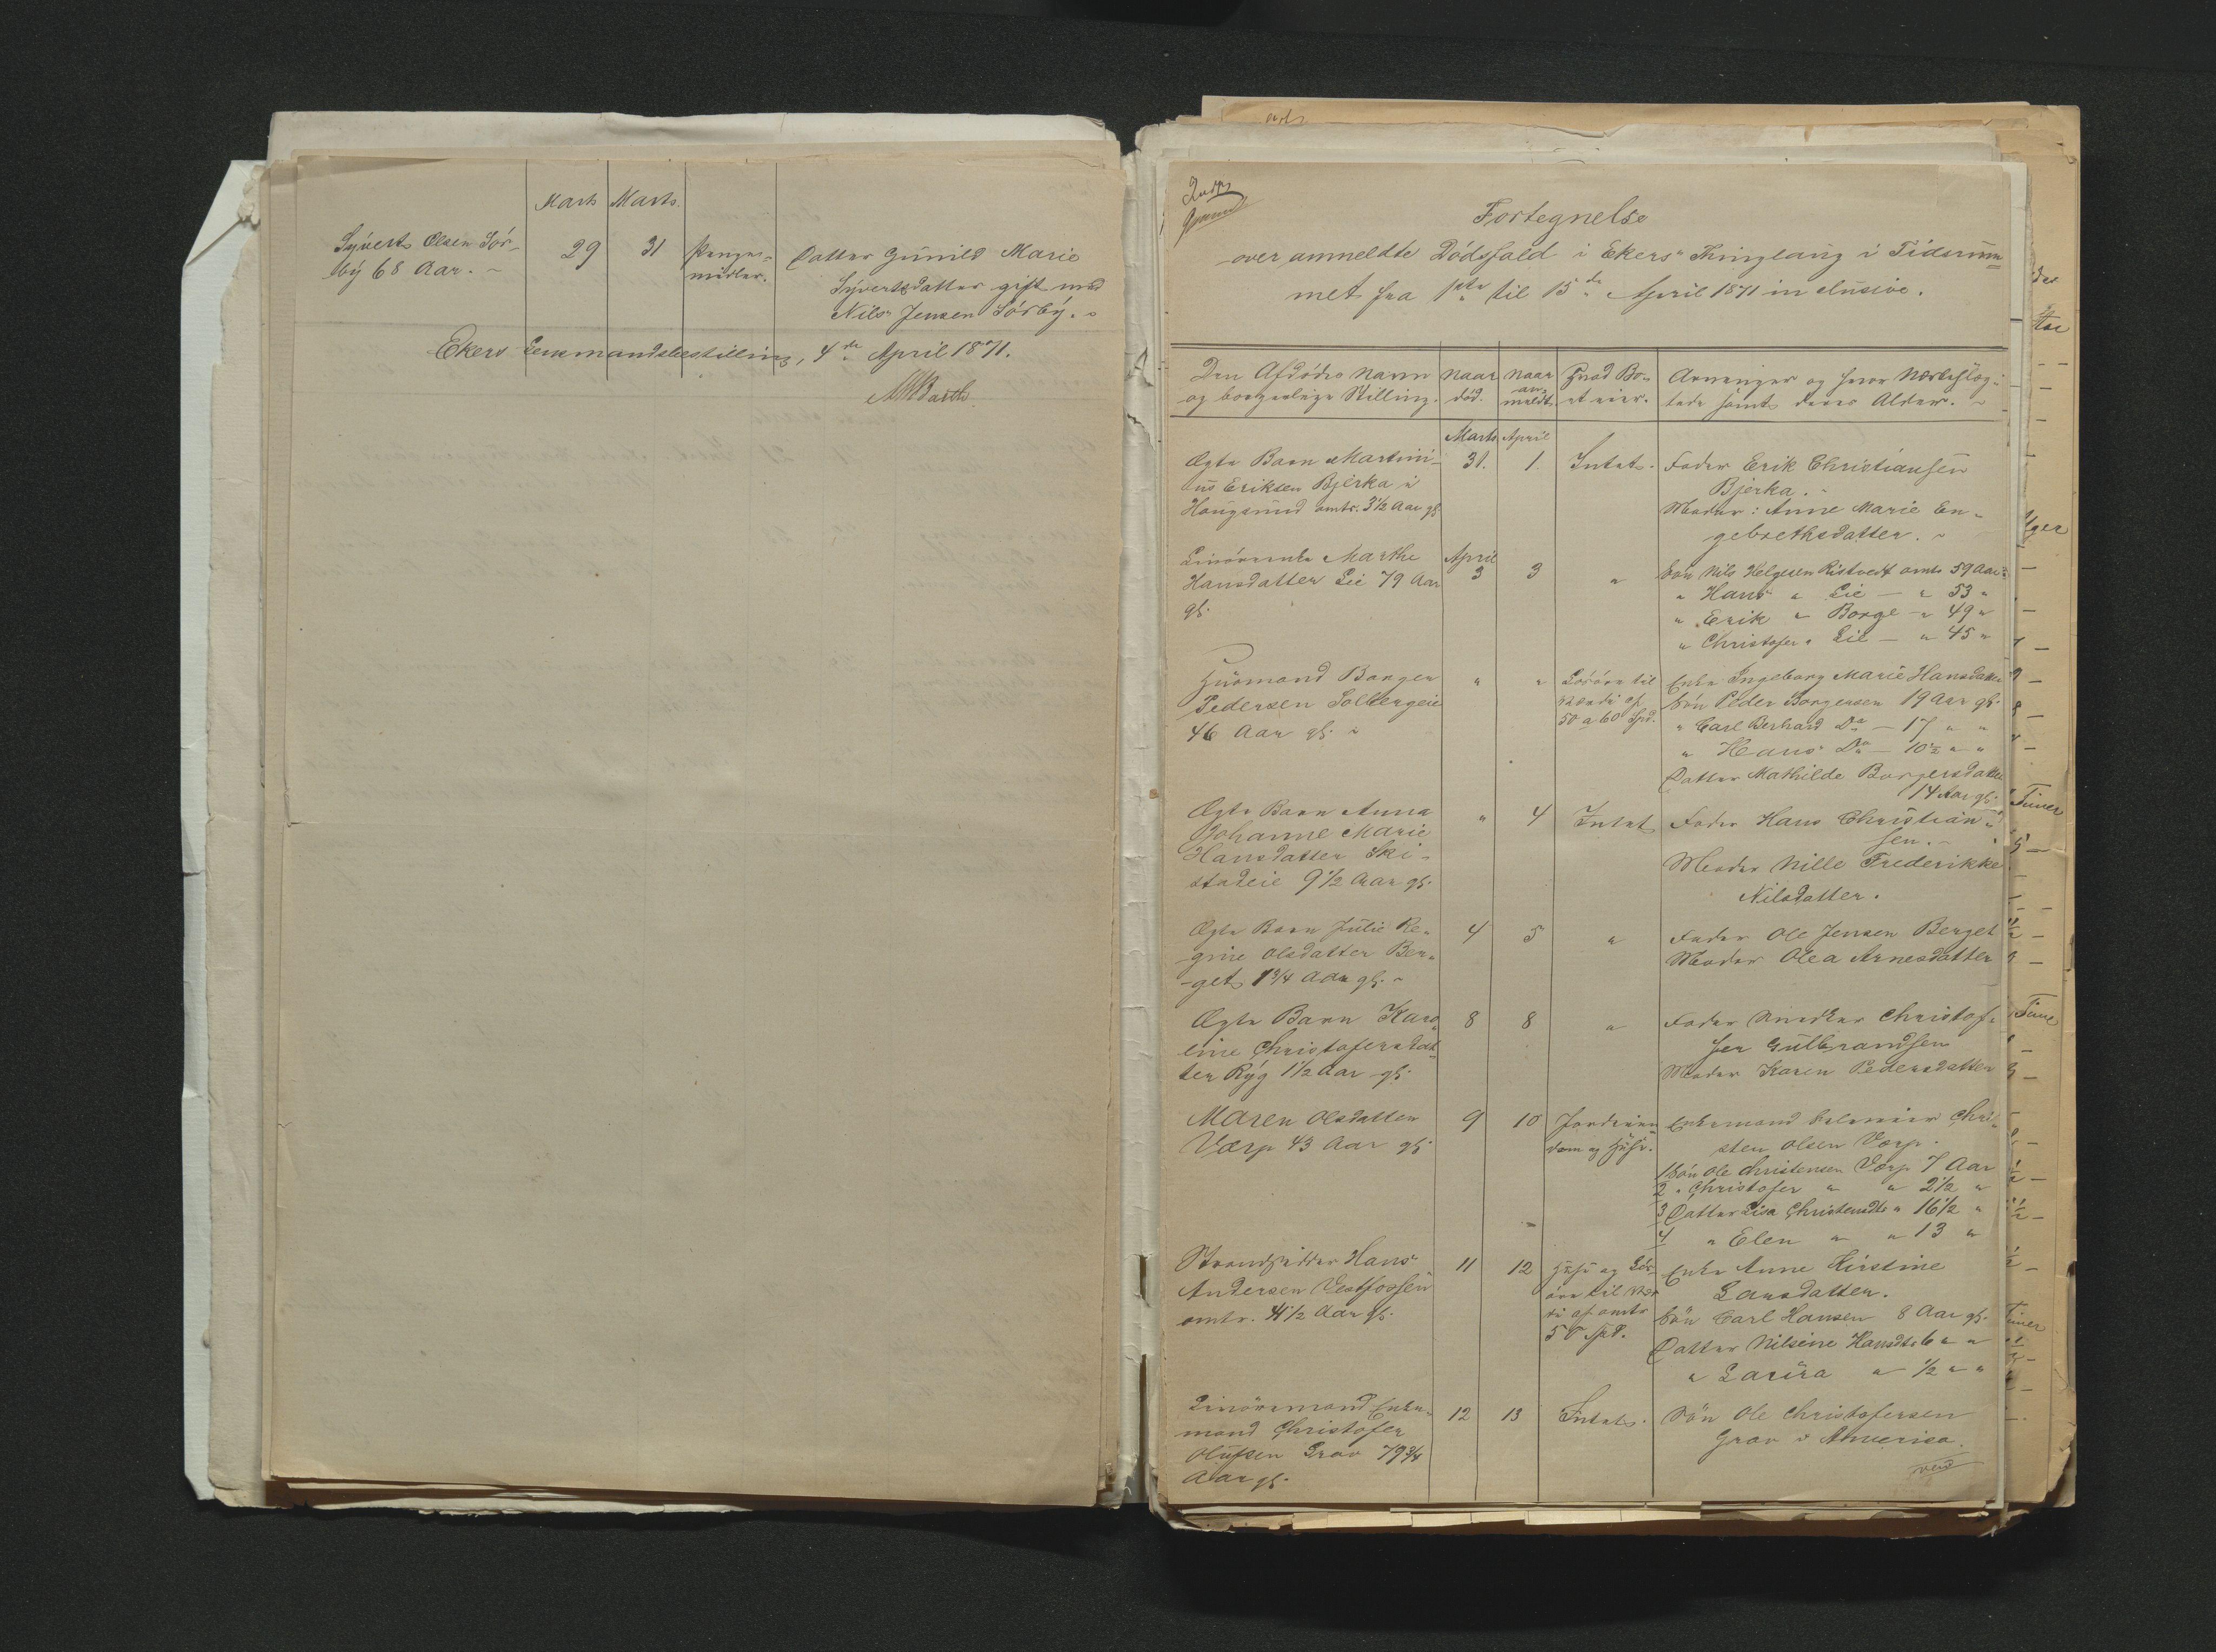 Marts Marts.
Syverts Olsen Sör-
by 68 Aar. -
29 31 Penge-
midler.
Datter Gunild Marie
Syvertsdatter gift med
Nils Jensen Sörby.
Ekers Lensmandsbestilling, 4de April 1871.
Barth
Fortegnelse
over anmeldte Dödsfald i Ekers Thinglaug i Tidsrum-
met fra 1ste til 15de April 1871 inclusive.
Den Afdödes Navn
og borgerlige Stilling.
Naar
död.
Naar
an-
meldt.
Hvad Bo-
et eier.
Arvinger og hvor Nærbeslæg-
tede samt deres Alder.
Marts April
Ægte Barn Martini-
us Eriksen Bjerka i
Hougsund omtr. 3 1/2 Aar gl.
31. 1. Intet.
Fader Erik Christiansen
Bjerka.
Moder: Anne Marie En-
gebrethsdatter.
Marthe
Hansdatter Lie 79 Aar
gl.
April
3 3 "
Sön Nils Helgesen Ristvedt omtr 59 Aar
" Hans " Lie - " 53 "
" Erik " Borge - " 49 "
" Christofer " Lie - " 45 "
Husmand Borger
Pedersen Solbergeie
46 Aar gl.
" " Lösöre til
Værdi af
50 a 60 Spd.
Enke Ingeborg Marie Hansdatter
Sön Peder Borgersen 19 Aar gl.
" Carl Berhard Do - 17 " "
" Hans Do - 10 1/2 " "
Datter Mathilde Borgersdatter
14 Aar gl.
Ægte Barn Anna
Johanne Marie
Hansdatter Ski-
stadeie 9 1/2 Aar gl.
" 4 Intet
Fader Hans Christian-
sen.
Moder Nille Frederikke
Nilsdatter.
Ægte Barn Julie Re-
gine Olsdatter Ber-
get 1 3/4 Aar gl.
4 5 "
Fader Ole Jensen Berget
Moder Olea Arnesdatter
Ægte Barn Karo-
line Christofersdat-
ter Ryg 1 1/2 Aar gl.
8 8 "
Fader Snedker Christof-
fer Gulbrandsen
Moder Karen Pedersdatter
Maren Olsdatter
Værp 43 Aar gl.
9 10 Jordeien-
dom og Huse.
Enkemand Selveier Chri-
sten Olsen Værp.
1 Sön Ole Christensen Værp 7 Aar
2 " Christofer " " 2 1/2 "
3 Datter Lisa Christensdtr " 16 1/2 "
4 " Elen " " 13 "
Strandsidder Hans
Andersen Vestfossen
omtr. 41 1/2 Aar gl.
11 12 Huse og Lös-
öre til Vær-
di af omtr
50 Spd.
Enke Anne Kirstine
Larsdatter.
Sön Carl Hansen 8 Aar gl.
Datter Nilsine Hansdtr 6 " "
" Laura " 1/2 " "
Enke-
mand Christofer
Olufsen Grav 79 3/4
Aar gl.
12 13 Intet.
Sön Ole Christofersen
Grav i America.
vend